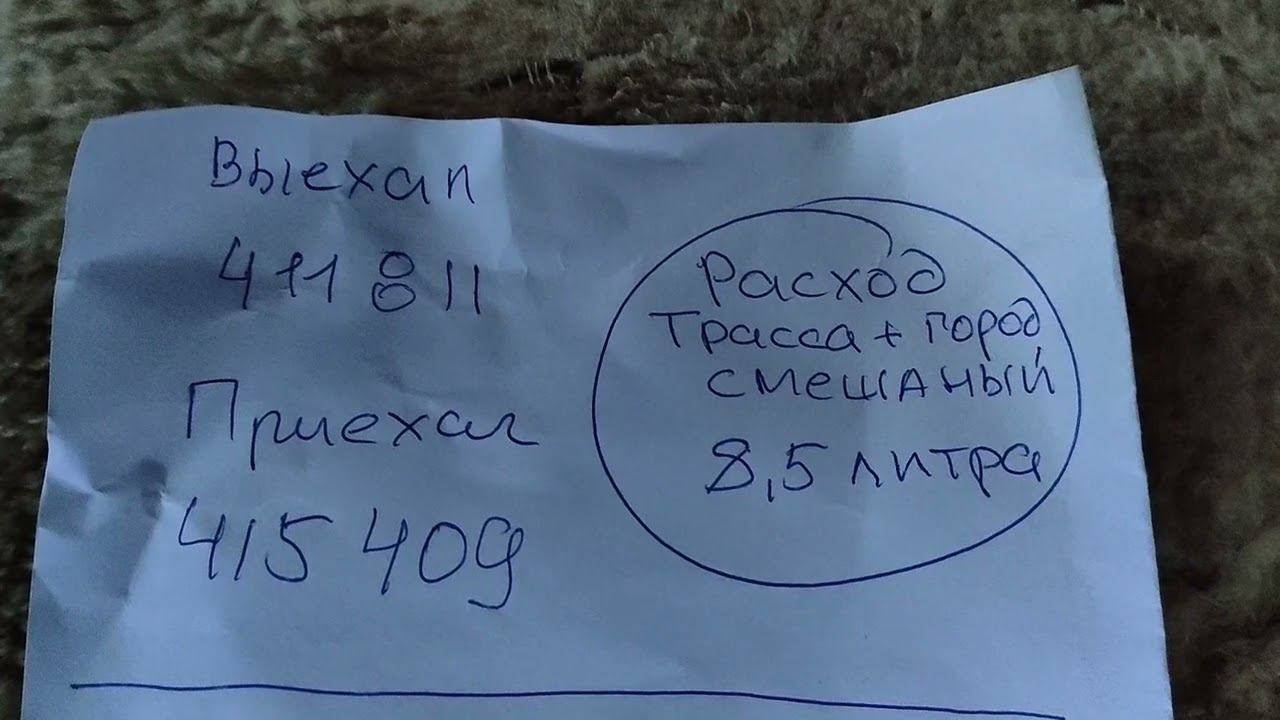 Выехал
411811
Приехал
415409
Расход
Трасса + город
смешаный
8,5 литра